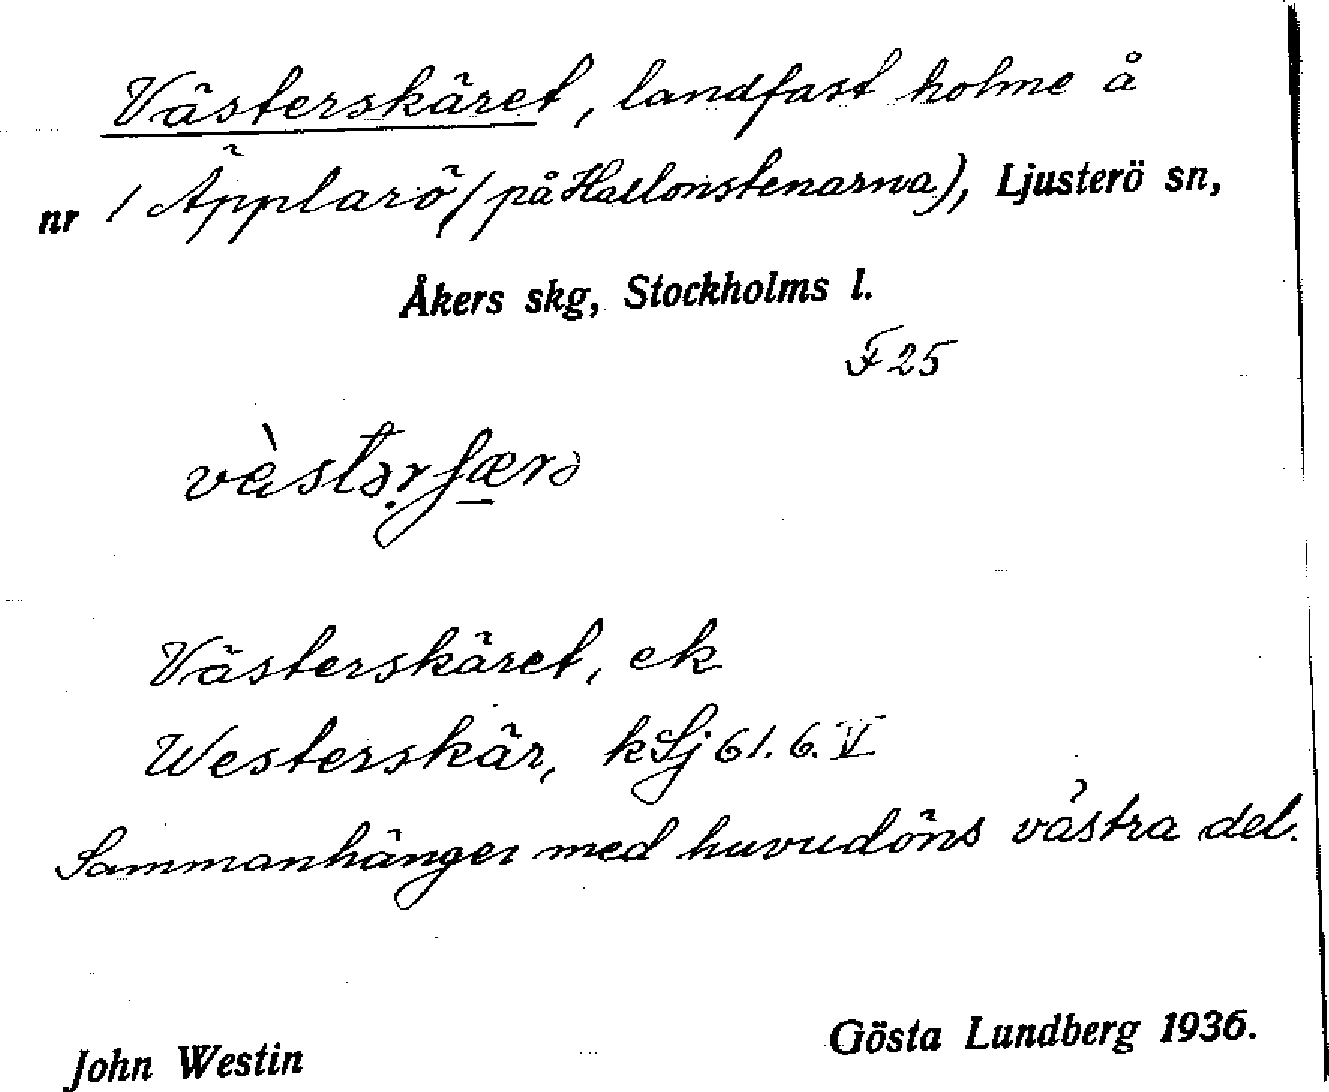 Västerskäret, landfast holme å
nr 1 Äpplarö (på Hallonstenarna), Ljusterö sn,
Åkers skg, Stockholms l.
F 25
vèstərʃærə
Västerskäret, ek
Westerskär, kSj 61. 6. V
Sammanhänger med huvudöns västra del.
John Westin
Gösta Lundberg 1936.